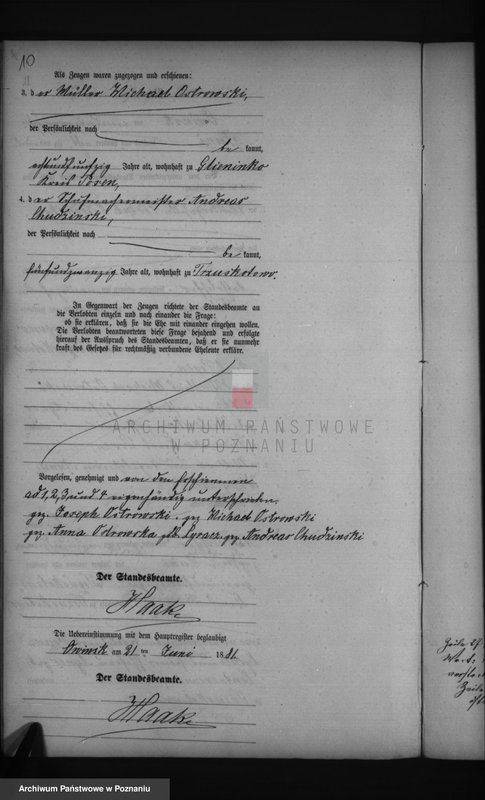 10
Als Zeugen waren zugezogen und erschienen:
3. der Müller Michael Ostrowski,
der Persönlichkeit nach
be kannt,
Jahre alt, wohnhaft zu Glieninko
Kreis Posen,
4. der Schuhmachermeister Andreas
Chudzinski,
der Persönlichkeit nach
be kannt,
fünfundzwanzig Jahre alt, wohnhaft zu Truskotowo.
In Gegenwart der Zeugen richtete der Standesbeamte an
die Verlobten einzeln und nach einander die Frage:
ob sie erklären, daß sie die Ehe mit einander eingehen wollen.
Die Verlobten beantworteten diese Frage bejahend und erfolgte
hierauf der Ausspruch des Standesbeamten, daß er sie nunmehr
kraft des Gesetzes für rechtmäßig verbundene Eheleute erkläre.
ARCHIWUM PAŃSTWOWE
W POZNANIU
Vorgelesen, genehmigt und von den Erschienenen
ad 1, 2, 3 und 4 eigenhändig unterschrieben.
gez. Joseph Ostrowski. gez Michael Ostrowski
gez. Anna Ostrowska geb. gez. Andreas Chudzinski
Der Standesbeamte.
Haake
Die Uebereinstimmung mit dem Hauptregister beglaubigt
Owinsk am 21 ten Juni 1881.
Der Standesbeamte.
Haake
Zeile 27
Zeile
Archiwum Państwowe w Poznaniu